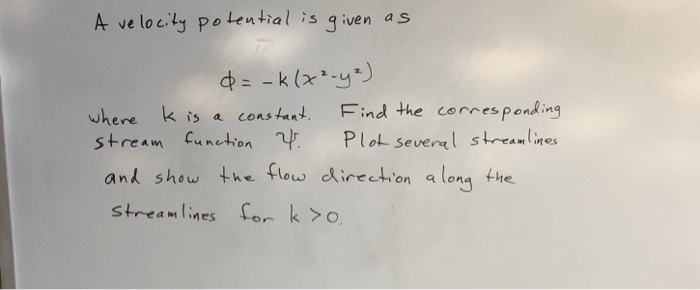 A velocity potential is given as
ϕ = -k(x²-y²)
where k is a constant. Find the corresponding
stream function ψ. Plot several streamlines
and show the flow direction along the
streamlines for k >0.